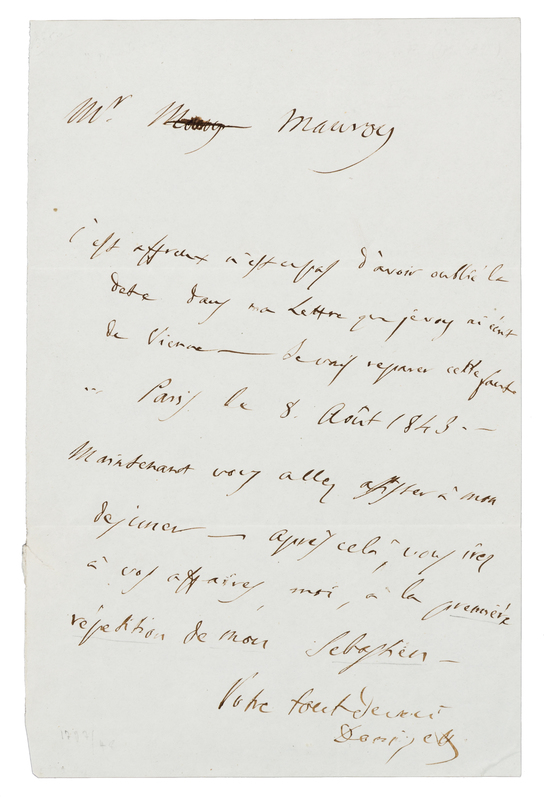 Mr. Mauroy
C'est affreux n'est ce pas d'avoir oublié la
date dans ma Lettre que je vous ai écrit
de Vienne — Je vais reparer cette faute
Paris le 8. Août 1843. —
Maintenant vous allez assister à mon
dejeuner — après celà, vous irez
à vos affaires, moi, à la première
répetition de mon Sebastien —
Votre tout devoué
Donizetti